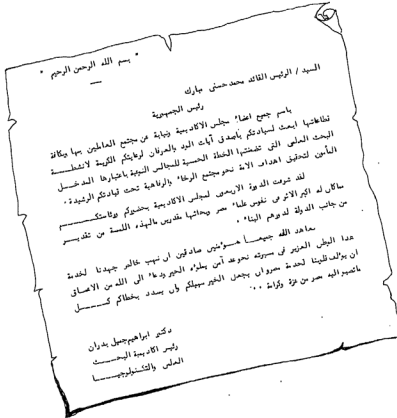 " بسم الله الرحمن الرحيم "
السيد / الرئيس القائد محمد حسنى مبارك
رئيس الجمهورية
باسم جميع اعضاء مجلس الاكاديمية ونيابة عن مجتمع العاملين بها وبكافة
قطاعاتها ابعث لسيادتكم بأصدق آيات الود والعرفان لرعايتكم الكريمة لانشطة
البحث العلمى التى تضمنتها الخطة الخمسية للمجالس النوعية باعتبارها المدخل
المأمون لتحقيق اهداف الامة نحو مجتمع الرخاء والرفاهية تحت قيادتكم الرشيدة .
لقد شرفت الدورة الاربعون لمجلس الاكاديمية بحضوركم ورئاستكم
مما كان له اكبر الاثر فى نفوس علماء مصر وبحاثها مقدرين ما لهذه اللمسة من تقدير
من جانب الدولة لدورهم البناء .
نعاهد الله جميعا مؤمنين صادقين ان نهب خالص جهدنا لخدمة
هذا الوطن العزيز فى مسيرته نحو غد آمن يملؤه الخير ودعاء الى الله من الاعماق
ان يؤلف قلوبنا لخدمة مصر وان يجعل الخير سبيلكم وان يسدد خطاكم لكل
ما تصبو اليه مصر من عزة وكرامة ..
دكتور ابراهيم جميل بدران
رئيس اكاديمية البحث
العلمى والتكنولوجيا